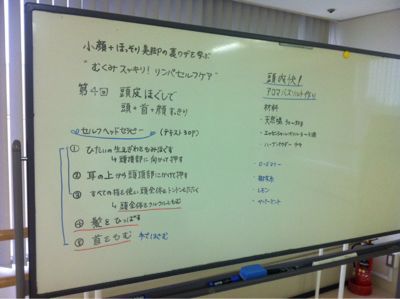 小顔+ほっそり美脚の裏ワザを学ぶ
"むくみスッキリ! リンパセルフケア"
第4回 頭皮ほぐしで
頭+首+顔すっきり
セルフヘッドセラピー (テキスト30P)
① ひたいの生えぎわをもみほぐす
↳ 頭頂部に向かって押す
② 耳の上から頭頂部にかけて押す
③ すべての指を使い頭全体をトントンたたく
↳ 頭全体をクルクルともむ
④ 髪をひっぱる
⑤ 首をもむ 手でほぐむ
頭爽快!
アロマバスソルト作り
材料
・天然塩
・エッセンシャルオイル
・ハーブパウダー
・ローズマリー
・レモン
・ペパーミント